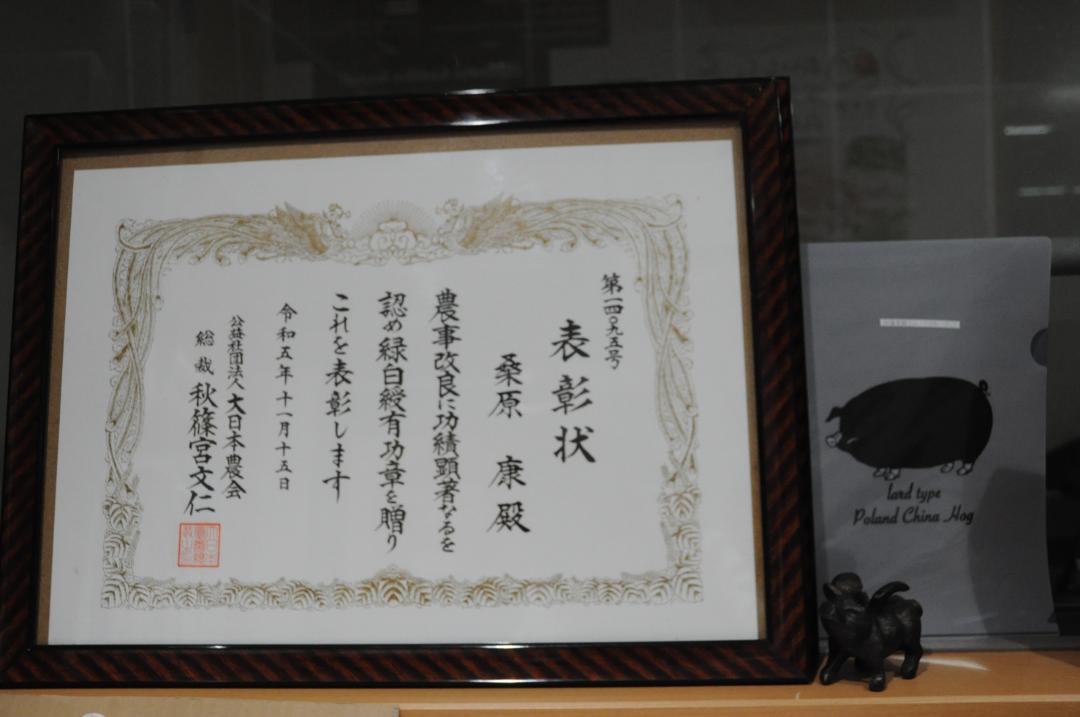 第一四〇九五号
表彰状
桑原 康殿
農事改良に功績顕著なるを
認め緑白綬有功章を贈り
これを表彰します
令和五年十一月十五日
公益社団法人大日本農会
総裁 秋篠宮文仁
lard type
Poland China Hog